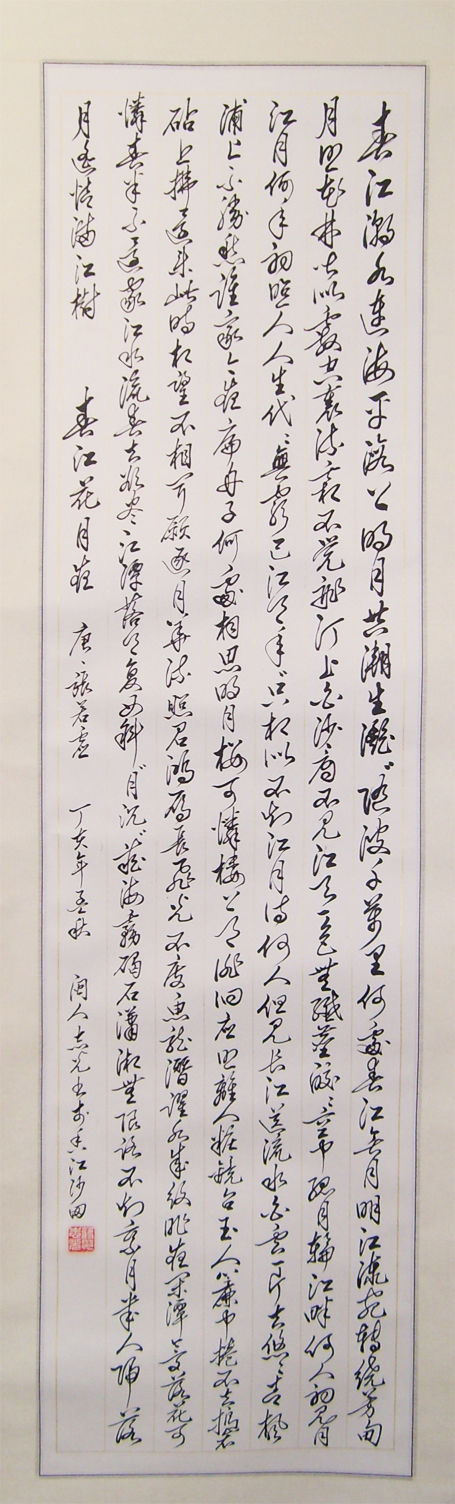 春江潮水連海平海上明月共潮生灩〻隨波千萬里何處春江無月明江流宛轉繞芳甸
月照花林皆似霰空裏流霜不覺飛汀上白沙看不見江天一色無纖塵皎〻空中孤月輪江畔何人初見月
江月何年初照人人生代〻無窮已江月年〻只相似不知江月待何人但見長江送流水白雲一片去悠〻青楓
浦上不勝愁誰家今夜扁舟子何處相思明月樓可憐樓上月徘徊應照離人妝鏡台玉戶簾中捲不去擣衣
砧上拂還來此時相望不相聞願逐月華流照君鴻雁長飛光不度魚龍潛躍水成紋昨夜閑潭夢落花可
憐春半不還家江水流春去欲盡江潭落月復西斜〻月沉〻藏海霧碣石瀟湘無限路不知乘月幾人歸落
月搖情滿江樹 春江花月夜 唐張若虛 丁亥年孟秋 閩人志光書於香江沙田